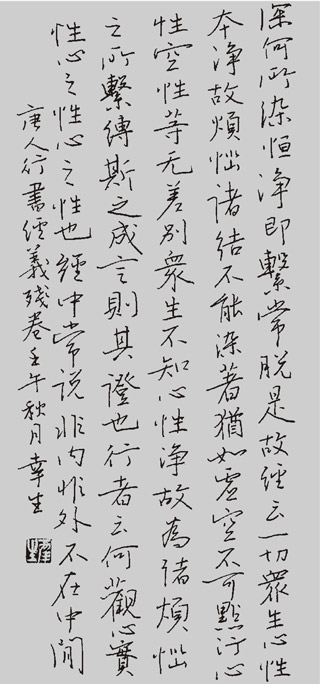 深何所染恒净即繫常脱是故经云一切衆生心性
本净故煩惱諸结不能染著猶如虚空不可點污心
性空性等无差别衆生不知心性净故為诸煩惱
之所繫缚斯之成言则其證也行者云何觀心實
性心之性心之性也經中常说非内非外不在中間
唐人行書經義殘卷壬午秋月幸生